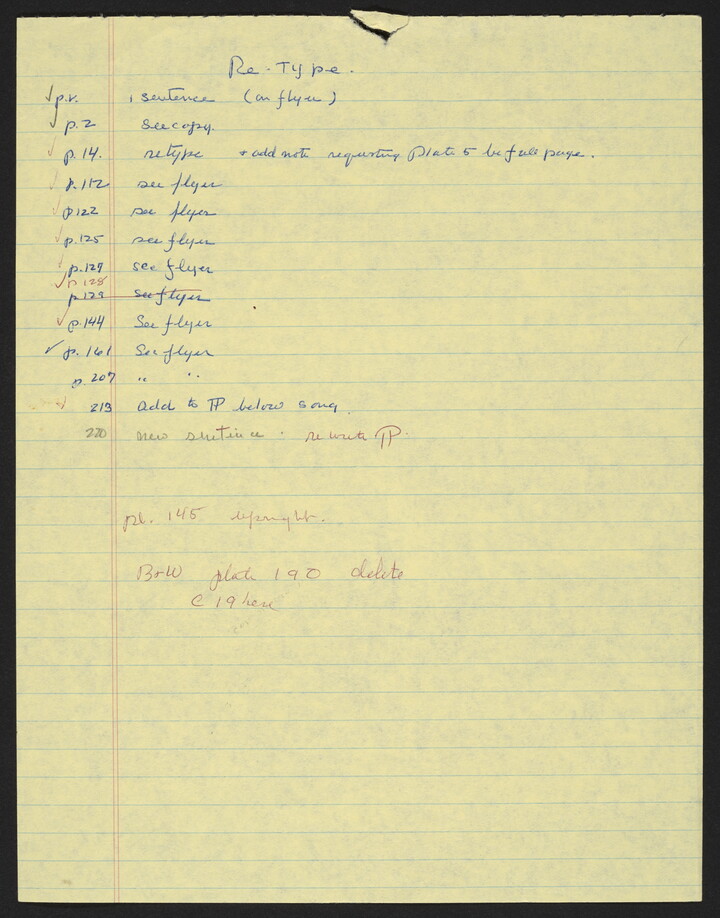 Re-Type.
✓ p.v. 1 sentence (on flyer)
✓ p. 2 see copy.
✓ p. 14. retype + add note requesting Plate 5 be full page.
✓ p. 112 see flyer
✓ p. 122 see flyer
✓ p. 125 see flyer
✓ p. 127 see flyer
✓ p. 128
p. 129 see flyer
✓ p. 144 See flyer
✓ p. 161 See flyer
p. 207 " "
213 add to ¶ below song.
220 new sentence. rewrite ¶.
pl. 145 upright.
B+W plate 190 delete
C 19 here